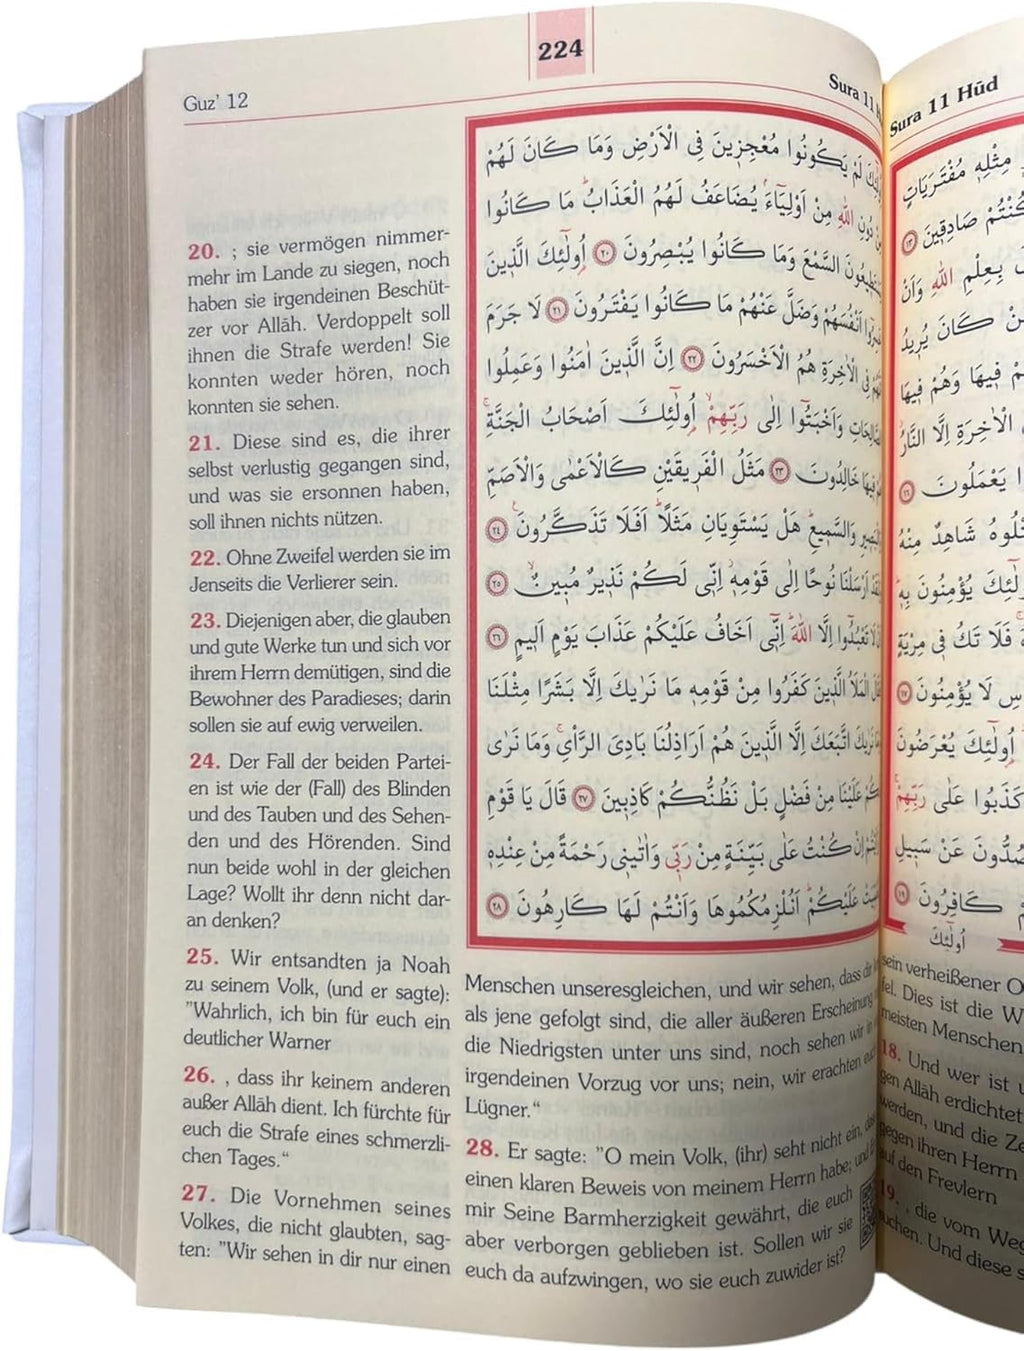 224
Guz' 12
Sura 11
20. ; sie vermögen nimmer-
mehr im Lande zu siegen, noch
haben sie irgendeinen Beschüt-
zer vor Allāh. Verdoppelt soll
ihnen die Strafe werden! Sie
konnten weder hören, noch
konnten sie sehen.
21. Diese sind es, die ihrer
selbst verlustig gegangen sind,
und was sie ersonnen haben,
soll ihnen nichts nützen.
22. Ohne Zweifel werden sie im
Jenseits die Verlierer sein.
23. Diejenigen aber, die glauben
und gute Werke tun und sich vor
ihrem Herrn demütigen, sind die
Bewohner des Paradieses; darin
sollen sie auf ewig verweilen.
24. Der Fall der beiden Partei-
en ist wie der (Fall) des Blinden
und des Tauben und des Sehen-
den und des Hörenden. Sind
nun beide wohl in der gleichen
Lage? Wollt ihr denn nicht dar-
an denken?
25. Wir entsandten ja Noah
zu seinem Volk, (und er sagte):
"Wahrlich, ich bin für euch ein
deutlicher Warner
26. , dass ihr keinem anderen
außer Allāh dient. Ich fürchte für
euch die Strafe eines schmerzli-
chen Tages.“
27. Die Vornehmen seines
Volkes, die nicht glaubten, sag-
ten: "Wir sehen in dir nur einen
لَمْ يَكُونُوا مُعْجِزِينَ فِى الْاَرْضِ وَمَا كَانَ لَهُمْ
دُونِ اللّٰهِ مِنْ اَوْلِيَٓاءَۘ يُضَاعَفُ لَهُمُ الْعَذَابُۜ مَا كَانُوا
السَّمْعَ وَمَا كَانُوا يُبْصِرُونَ ٢٠ اُو۬لٰٓئِكَ الَّذِينَ
اَنْفُسَهُمْ وَضَلَّ عَنْهُمْ مَا كَانُوا يَفْتَرُونَ ٢١ لَا جَرَمَ
فِى الْاٰخِرَةِ هُمُ الْاَخْسَرُونَ ٢٢ اِنَّ الَّذِينَ اٰمَنُوا وَعَمِلُوا
وَاَخْبَتُٓوا اِلٰى رَبِّهِمْۙ اُو۬لٰٓئِكَ اَصْحَابُ الْجَنَّةِۚ
فِيهَا خَالِدُونَ ٢٣ مَثَلُ الْفَرِيقَيْنِ كَالْاَعْمٰى وَالْاَصَمِّ
وَالسَّمِيعِۜ هَلْ يَسْتَوِيَانِ مَثَلًاۜ اَفَلَا تَذَكَّرُونَ۟ ٢٤
اَرْسَلْنَا نُوحًا اِلٰى قَوْمِهِۘ اِنِّى لَكُمْ نَذِيرٌ مُبِينٌۙ ٢٥
تَعْبُدُٓوا اِلَّا اللّٰهَۜ اِنِّٓى اَخَافُ عَلَيْكُمْ عَذَابَ يَوْمٍ اَلِيمٍ ٢٦
الْمَلَاُ الَّذِينَ كَفَرُوا مِنْ قَوْمِهِ مَا نَرٰيكَ اِلَّا بَشَرًا مِثْلَنَا
نَرٰيكَ اتَّبَعَكَ اِلَّا الَّذِينَ هُمْ اَرَاذِلُنَا بَادِىَ الرَّأْىِۚ وَمَا نَرٰى
عَلَيْنَا مِنْ فَضْلٍ بَلْ نَظُنُّكُمْ كَاذِبِينَ ٢٧ قَالَ يَا قَوْمِ
اِنْ كُنْتُ عَلٰى بَيِّنَةٍ مِنْ رَبِّى وَاٰتٰينِى رَحْمَةً مِنْ عِنْدِهِ
عَلَيْكُمْۜ اَنُلْزِمُكُمُوهَا وَاَنْتُمْ لَهَا كَارِهُونَ ٢٨
Menschen unseresgleichen, und wir sehen, dass dir
als jene gefolgt sind, die aller äußeren Erscheinung
die Niedrigsten unter uns sind, noch sehen wir in
irgendeinen Vorzug vor uns; nein, wir erachten
Lügner.“
28. Er sagte: "O mein Volk, (ihr) seht nicht ein,
einen klaren Beweis von meinem Herrn habe; und
mir Seine Barmherzigkeit gewährt, die euch
aber verborgen geblieben ist. Sollen wir sie
euch da aufzwingen, wo sie euch zuwider ist?
Sura 11 Hūd
مِثْلِهِ مُفْتَرَيَاتٍ
صَادِقِينَ ١٣
بِعِلْمِ اللّٰهِ وَاَنْ
كَانَ يُرِيدُ
فِيهَا وَهُمْ فِيهَا
الْاٰخِرَةِ اِلَّا النَّارُ
يَعْمَلُونَ ١٦
شَاهِدٌ مِنْهُ
يُؤْمِنُونَ بِهِ
فَلَا تَكُ فِى مِرْيَةٍ
لَا يُؤْمِنُونَ ١٧
اُو۬لٰٓئِكَ يُعْرَضُونَ
كَذَبُوا عَلٰى رَبِّهِمْ
عَنْ سَبِيلِ
كَافِرُونَ ١٩
اُو۬لٰٓئِكَ
sein verheißener
Dies ist die
meisten Menschen
18. Und wer ist
Allāh erdichtet
werden, und die
gegen ihren Herrn
auf den Frevlern
19. , die vom
Und diese